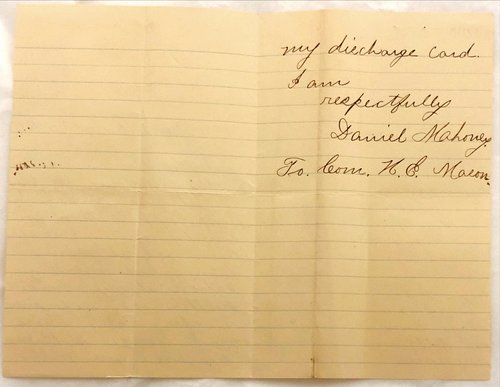 my discharge card.
I am
respectfully
Daniel Mahoney.
To. Com. H. E. Macon.